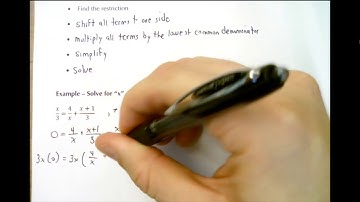 • Find the restriction
• shift all terms to one side
• multiply all terms by the lowest common denominator
• simplify
• solve
Example – Solve for "x"
x/3 = 4/x + (x+1)/3
0 = 4/x + (x+1)/3
3x(0) = 3x(4/x